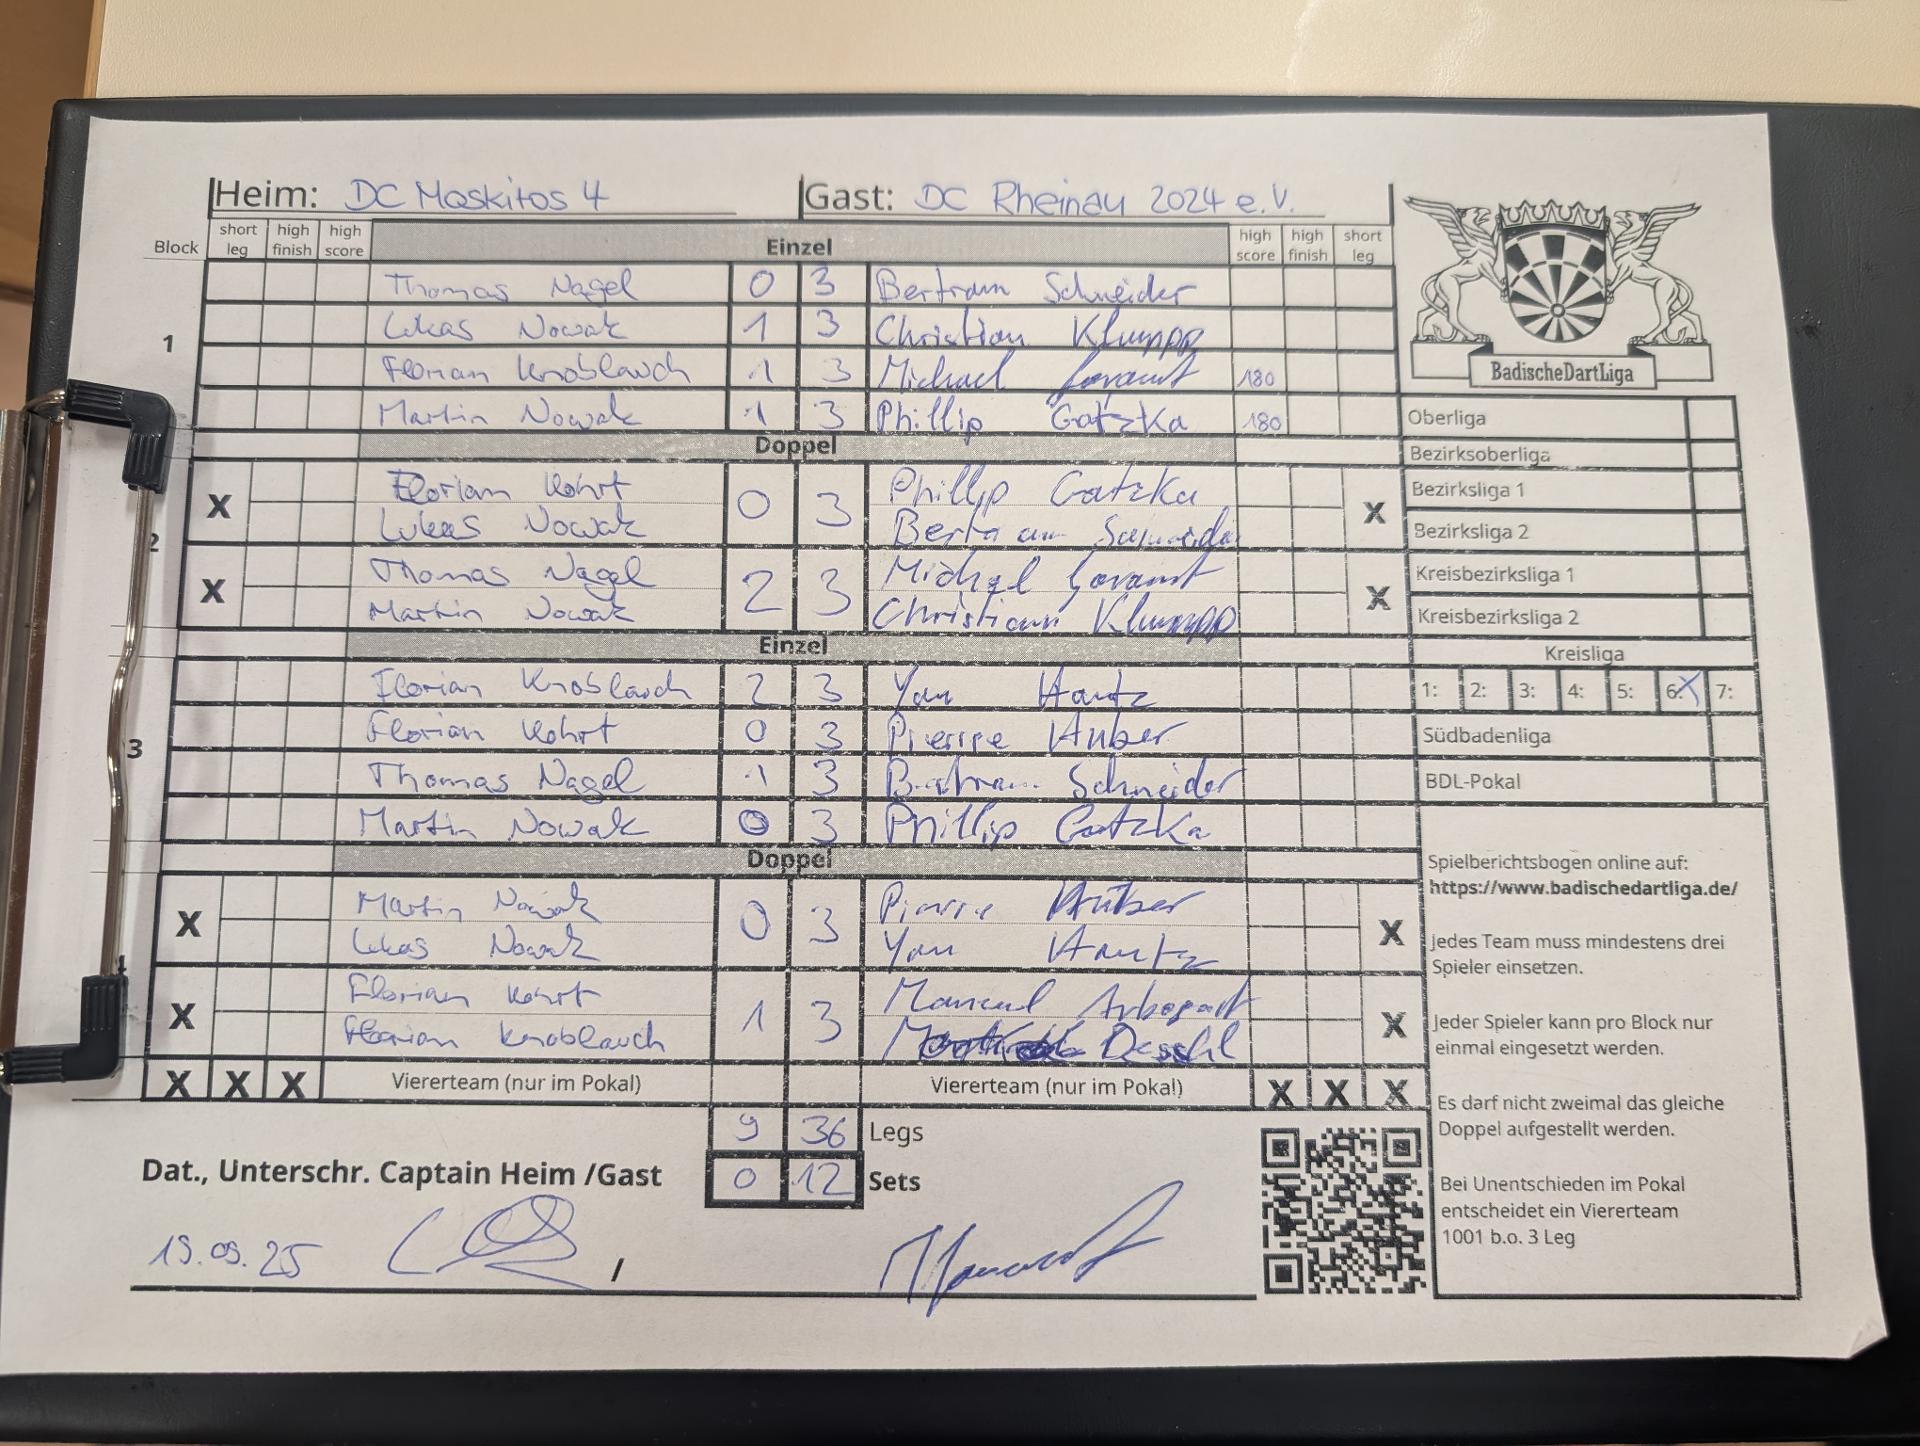 Heim: DC Moskitos 4 Gast: DC Rheinau 2024 e.V.
Block short leg high finish high score Einzel high score high finish short leg
Thomas Nagel 0 3 Bertram Schneider
1 Lukas Nowak 1 3 Christian Klumpp
Florian Knoblauch 1 3 Michael 180
Martin Nowak 1 3 Phillip Gatzka 180
Doppel
Florian Kohrt Phillip Gatzka
X 0 3 X
Lukas Nowak Bertram Schneider
2
Thomas Nagel Michael
X 2 3 X
Martin Nowak Christian Klumpp
Einzel
Florian Knoblauch 2 3 Yan Hantz
Florian Kohrt 0 3 Pierre Huber
3
Thomas Nagel 1 3 Bertram Schneider
Martin Nowak 0 3 Phillip Gatzka
Doppel
Martin Nowak Pierre Huber
X 0 3 X
Lukas Nowak Yan Hantz
Florian Kohrt Manuel
X 1 3 X
Florian Knoblauch
X X X Viererteam (nur im Pokal) Viererteam (nur im Pokal) X X X
9 36 Legs
0 12 Sets
Dat., Unterschr. Captain Heim /Gast
19.09.25 /
BadischeDartLiga
Oberliga
Bezirksoberliga
Bezirksliga 1
Bezirksliga 2
Kreisbezirksliga 1
Kreisbezirksliga 2
Kreisliga
1: 2: 3: 4: 5: 6: X 7:
Südbadenliga
BDL-Pokal
Spielberichtsbogen online auf:
https://www.badischedartliga.de/
Jedes Team muss mindestens drei
Spieler einsetzen.
Jeder Spieler kann pro Block nur
einmal eingesetzt werden.
Es darf nicht zweimal das gleiche
Doppel aufgestellt werden.
Bei Unentschieden im Pokal
entscheidet ein Viererteam
1001 b.o. 3 Leg